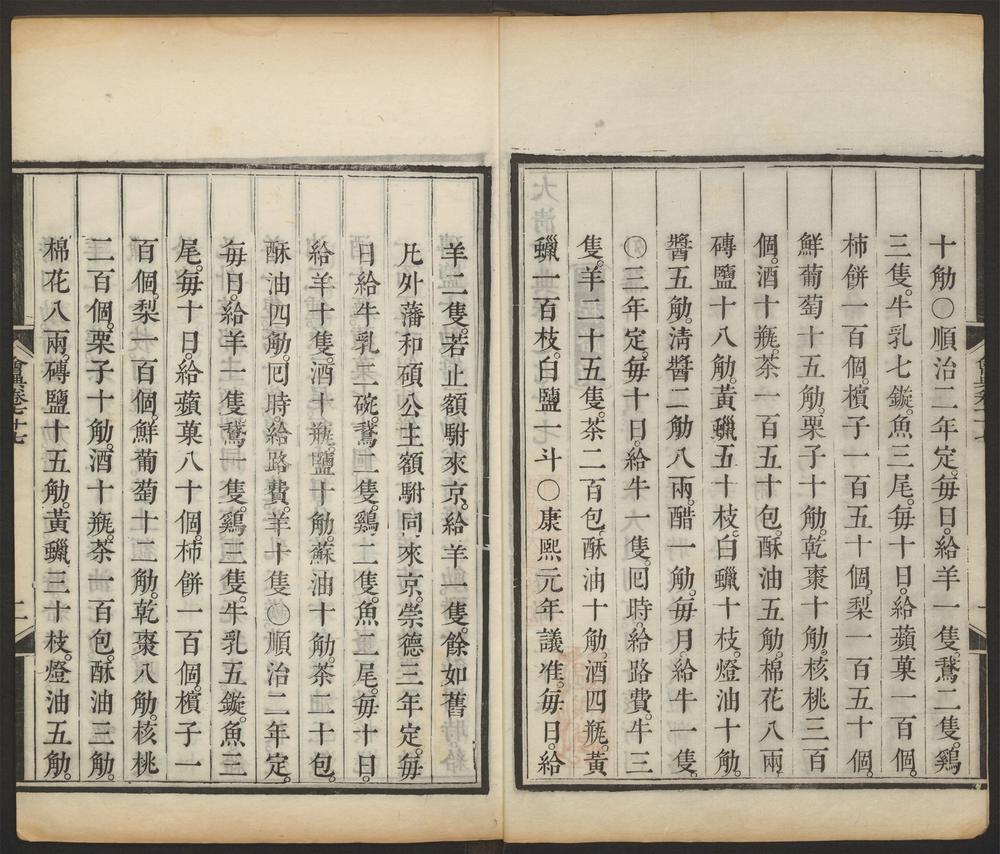 十觔○順治二年定。每日。給羊一隻。鵞二隻。鷄
三隻。牛乳七鏇。魚三尾。每十日。給蘋菓一百個。
柿餅一百個。檳子一百五十個。梨一百五十個。
鮮葡萄十五觔。栗子十觔。乾棗十觔。核桃三百
個。酒十瓶。茶一百五十包。酥油五觔。棉花八兩
磚鹽十八觔。黃蠟五十枝。白蠟十枝。燈油十觔。
醬五觔。淸醬二觔八兩。醋一觔。每月。給牛一隻。
○三年定。每十日。給牛一隻。囘時。給路費。牛三
隻。羊二十五隻。茶二百包。酥油十觔。酒四瓶。黃
蠟一百枝。白鹽一斗○康熙元年議准。每日。給
羊二隻。若止額駙來京。給羊一隻。餘如舊
凡外藩和碩公主額駙同來京。崇德三年定。每
日給牛乳一碗。鵞二隻。鷄二隻。魚二尾。每十日。
給羊十隻。酒十瓶。鹽十觔。蘇油十觔。茶二十包。
酥油四觔。囘時。給路費。羊十隻○順治二年定。
每日。給羊一隻。鵞一隻。鷄三隻。牛乳五鏇。魚三
尾。每十日。給蘋菓八十個。柿餅一百個。檳子一
百個。梨一百個。鮮葡萄十二觔。乾棗八觔。核桃
二百個。栗子十觔。酒十瓶。茶一百包。酥油三觔。
棉花八兩。磚鹽十五觔。黃蠟三十枝。燈油五觔。